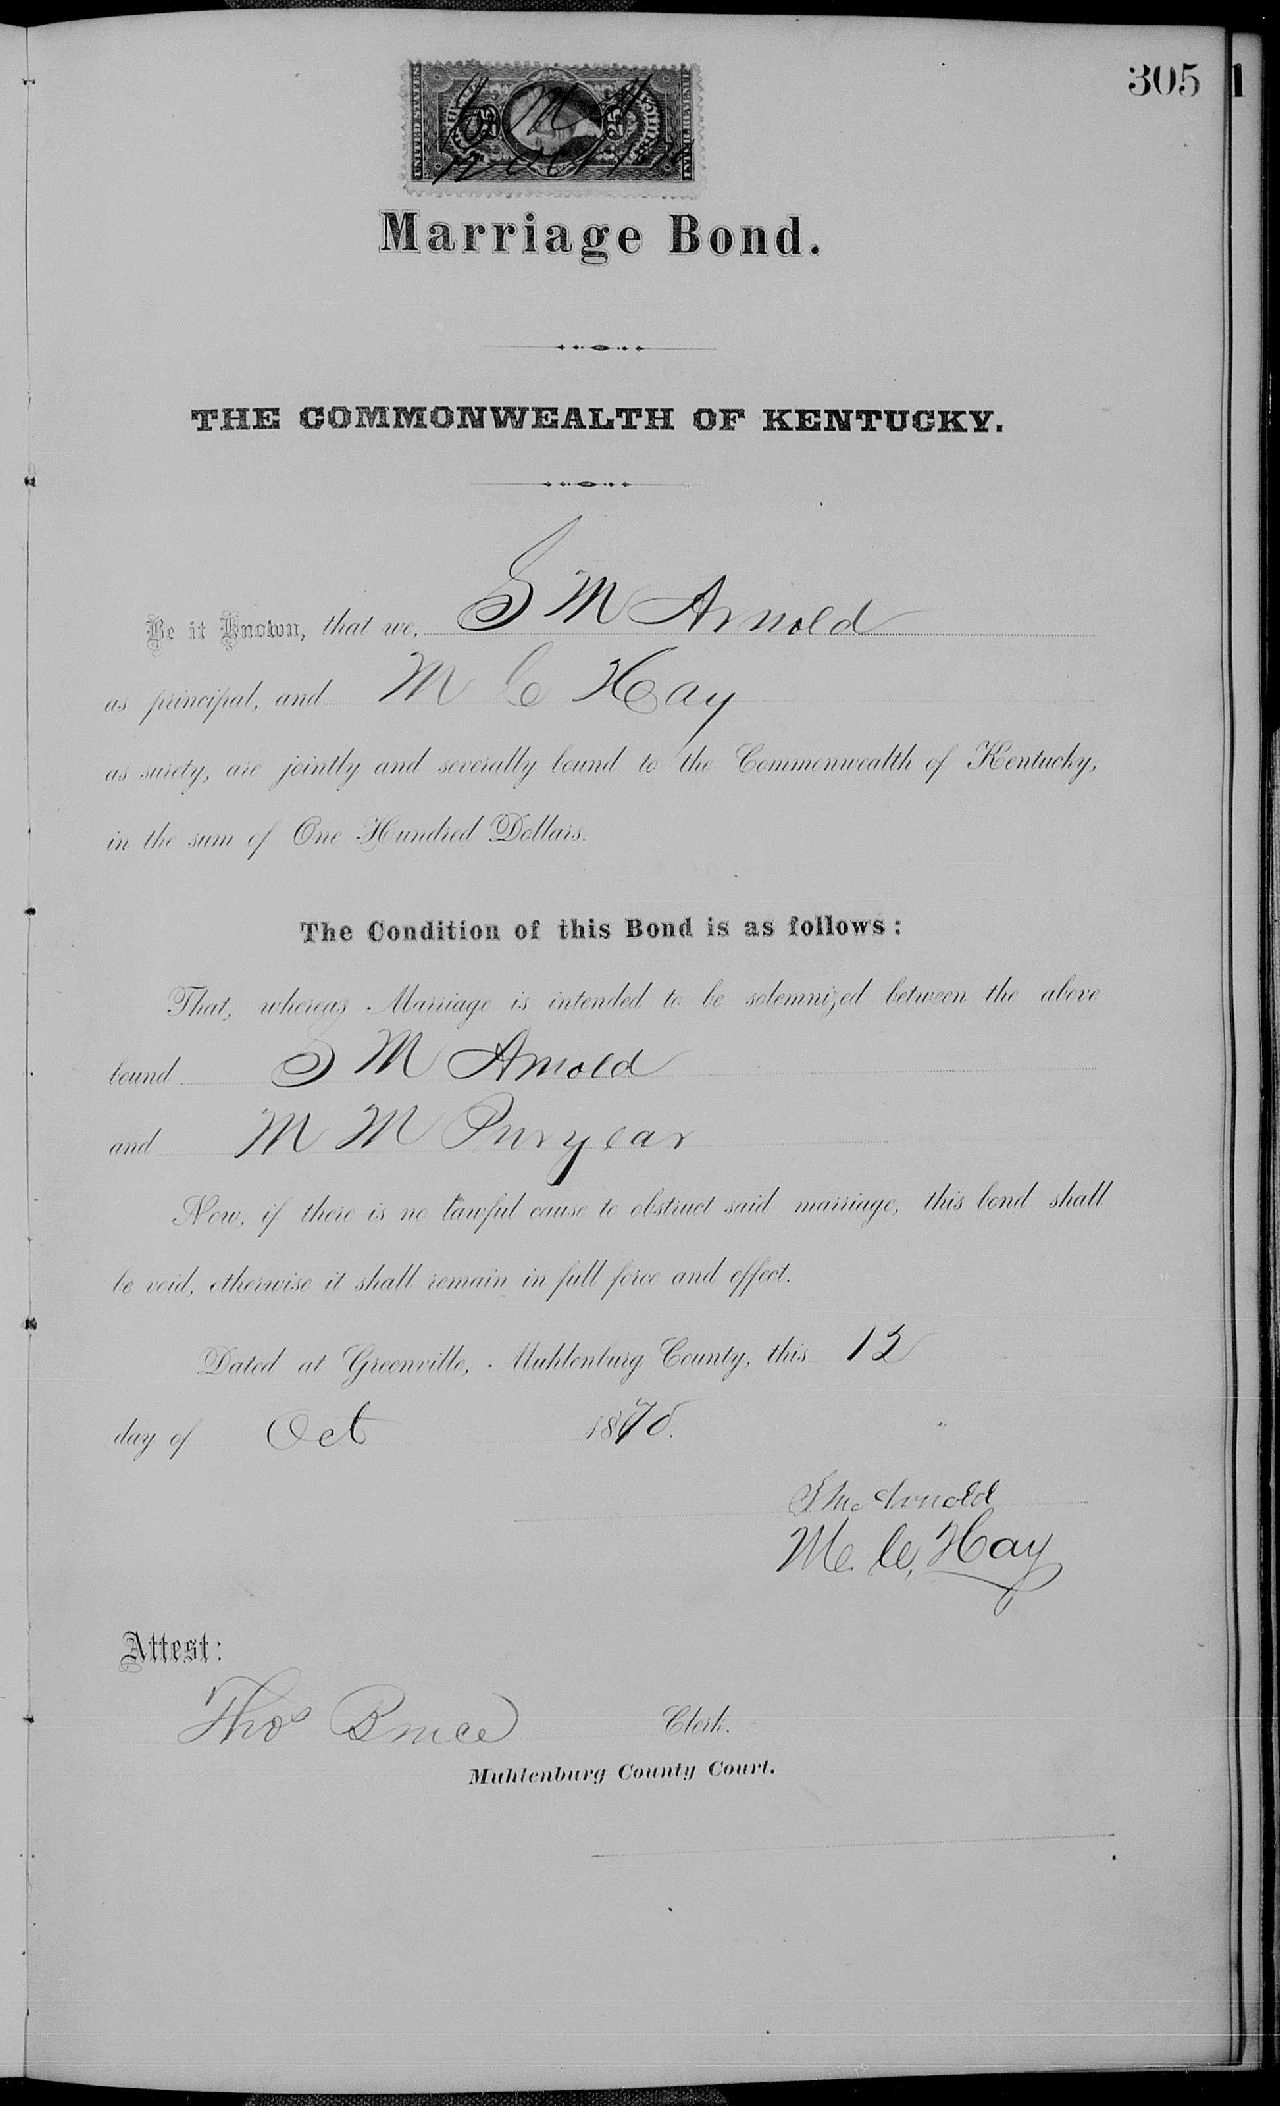 305
UNITED STATES
INTER. REVENUE
25
25
12 Oct 1870
Marriage Bond.
THE COMMONWEALTH OF KENTUCKY.
Be it Known, that we, S M Arnold
as principal, and M C Hay
as surety, are jointly and severally bound to the Commonwealth of Kentucky,
in the sum of One Hundred Dollars.
The Condition of this Bond is as follows:
That, whereas Marriage is intended to be solemnized between the above
bound S M Arnold
and M M Puryear
Now, if there is no lawful cause to obstruct said marriage, this bond shall
be void, otherwise it shall remain in full force and effect.
Dated at Greenville, Muhlenburg County, this 12
day of Oct 1870.
S M Arnold
M. C. Hay
Attest:
Thos Bruce Clerk.
Muhlenburg County Court.